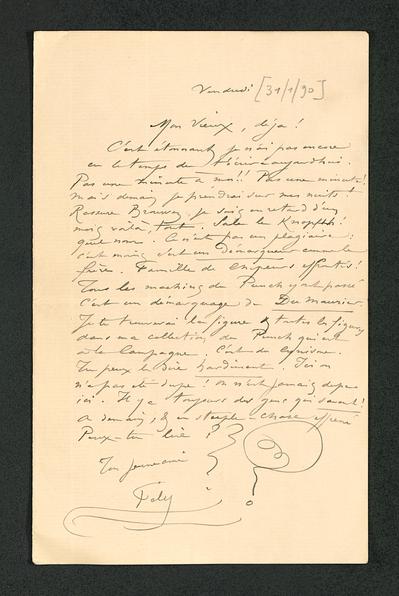 Vendredi [31/1/90]
Mon Vieux, déja !
C'est étonnant, je n'ai pas encore
eu le temps de
Pas une minute a moi !! Pas une minute !
Mais demain, je prendrai sur mes nuits !
Rassure Brunery, je suis en retard d'un
mois voilà, tout. Sale le Knopff !
quel nom. Ce n'est pas un plagiaire ;
c'est moins, c'est un démarqueur comme le
frère. Famille de copieurs effrontés !
Tous les machins du Punch y ont passé
C'est un démarquage de Du Maurier.
Je te trouverai la figure & toutes les figures
dans ma collection du Punch qui est
à la Campagne. C'est du cynisme.
Tu peux le dire hardiment. Ici on
n'a pas été dupe ! On n'est jamais dupe
ici. Il y a toujours des gens qui savent !
A demain, & en steeple-chase effréné
Peux-tu lire ?
Ton jeune ami
Fély